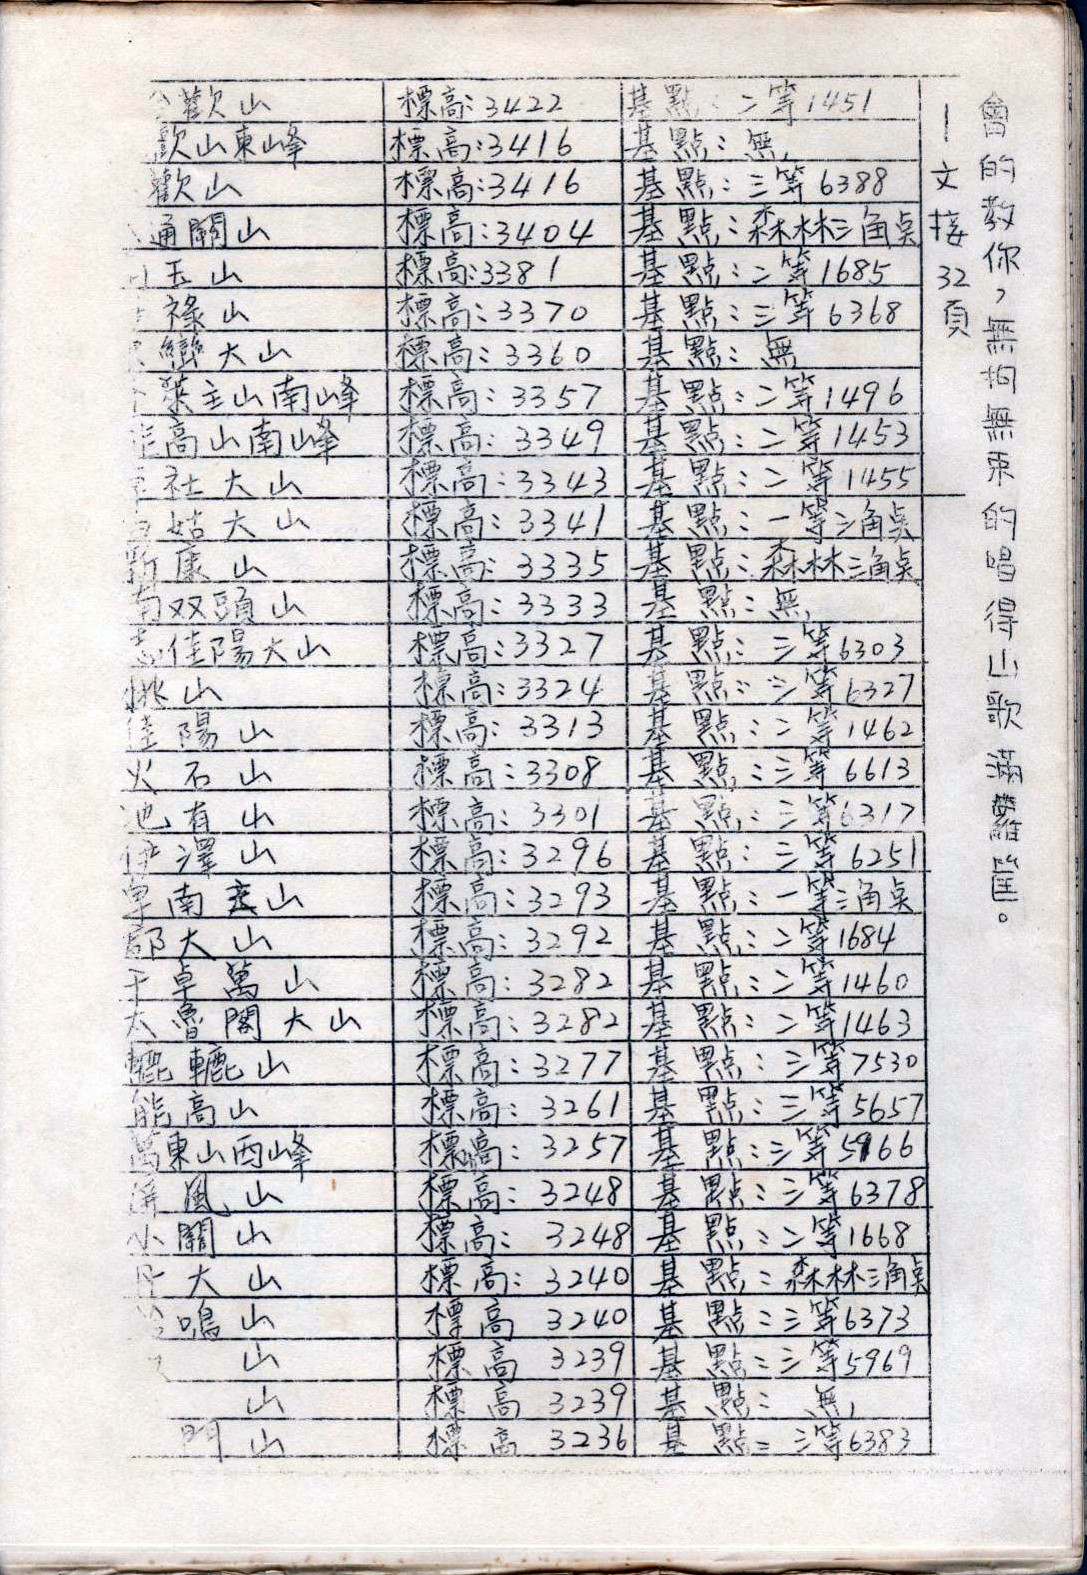 會的教你，無拘無束的唱得山歌滿籮筐。
—文接32頁
歡山 標高:3422 基點:二等1451
歡山東峰 標高:3416 基點:無
歡山 標高:3416 基點:三等6388
通關山 標高:3404 基點:森林三角点
玉山 標高:3381 基點:二等1685
祿山 標高:3370 基點:三等6368
巒大山 標高:3360 基點:無
萊主山南峰 標高:3357 基點:二等1496
能高山南峰 標高:3349 基點:二等1453
社大山 標高:3343 基點:二等1455
姑大山 標高:3341 基點:一等三角点
新康山 標高:3335 基點:森林三角点
南双頭山 標高:3333 基點:無
志佳陽大山 標高:3327 基點:三等6303
桃山 標高:3324 基點:三等6327
佳陽山 標高:3313 基點:二等1462
火石山 標高:3308 基點:三等6613
池有山 標高:3301 基點:三等6317
伊澤山 標高:3296 基點:三等6251
卑南主山 標高:3293 基點:一等三角点
郡大山 標高:3292 基點:二等1684
干卓萬山 標高:3282 基點:二等1460
太魯閣大山 標高:3282 基點:二等1463
轆轆山 標高:3277 基點:三等7530
能高山 標高:3261 基點:三等5657
萬東山西峰 標高:3257 基點:三等5966
屏風山 標高:3248 基點:三等6378
小關山 標高:3248 基點:二等1668
丹大山 標高:3240 基點:森林三角点
鳴山 標高 3240 基點:三等6373
山 標高 3239 基點:三等5969
山 標高 3239 基點:無
門山 標高 3236 基點:三等6383